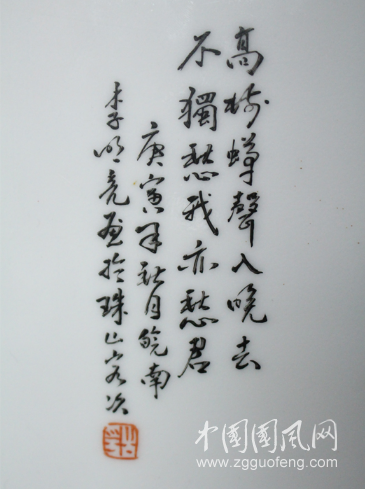 高树蟬聲入晚去
不獨愁我亦愁君
庚寅年秋月皖南
李明亮画於珠山客次
中國國風网
www.zgguofeng.com